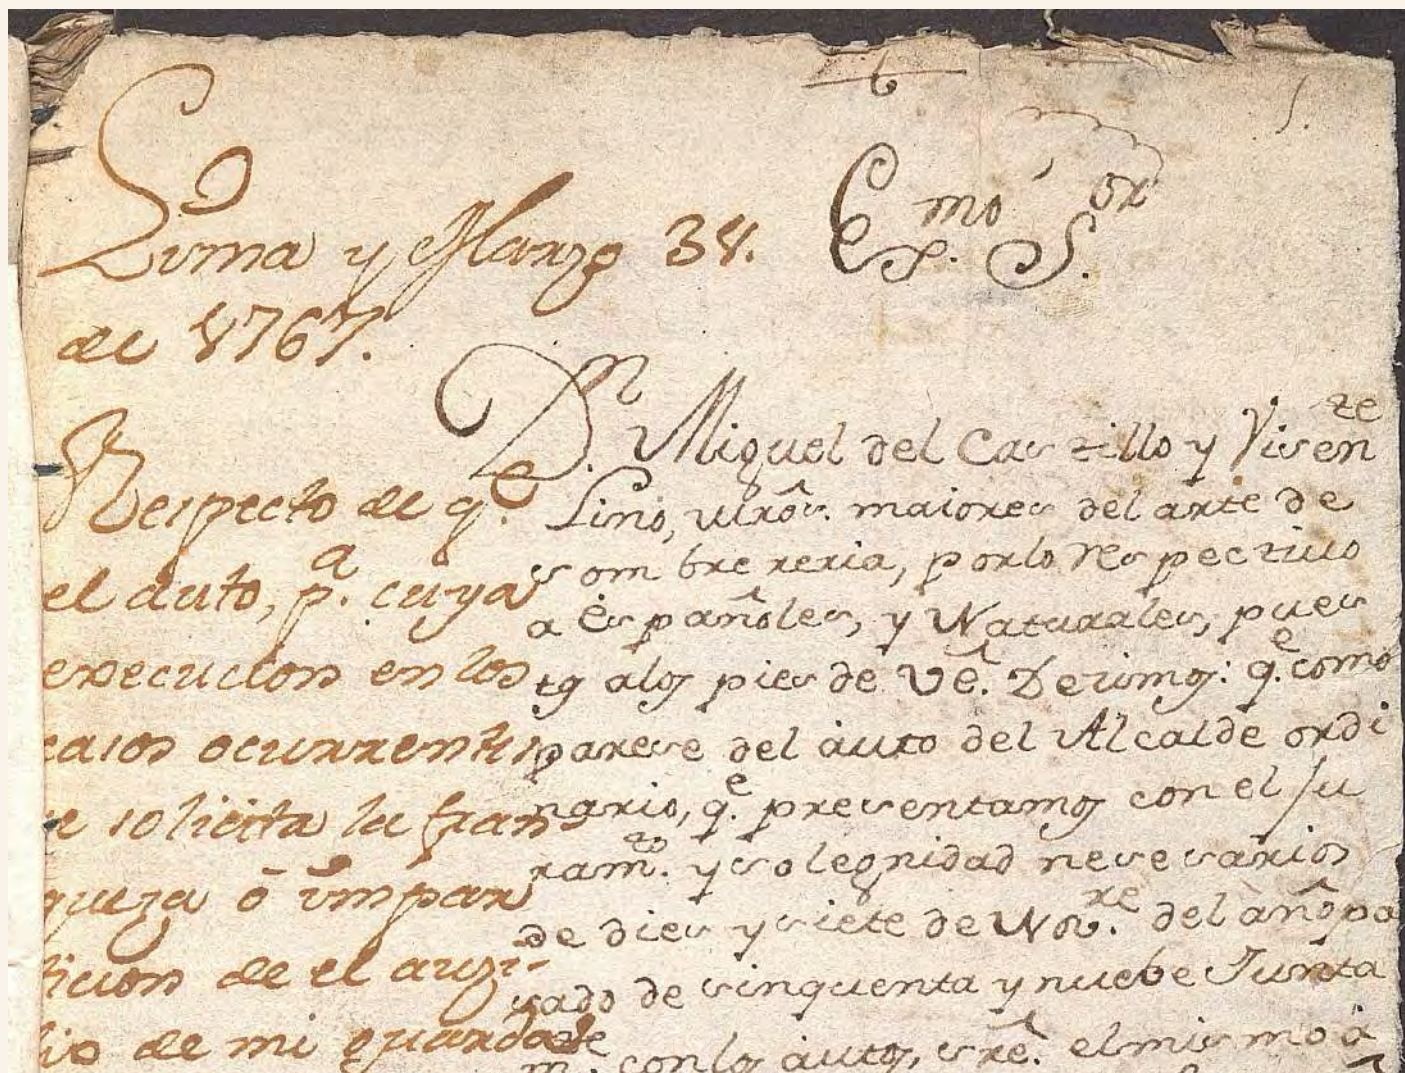 Lima y Marzo 31.
de 1767.
Respecto de q.e
el auto, p.a cuya
execucion en los
casos ocurrentes
se solicita la fran
queza ò impar
ticion de el auxi-
lio de mi guarda
Ex.mo S.or
D.n Miguel del Castillo y Visen.te
Lino, Mrôs. maiores del arte de
sombrereria, por lo respectivo
a Españoles, y Naturales, pues
tos a los pies de VÊ. Desimos: q.e como
parese del auto del Alcalde ordi
nario, q.e presentamos con el Ju
ram.to y solegnidad nesesarios
de dies y siete de Nov.re del año pa
sado de sinquenta y nuebe Junta
m.te con los autos, el mismo a